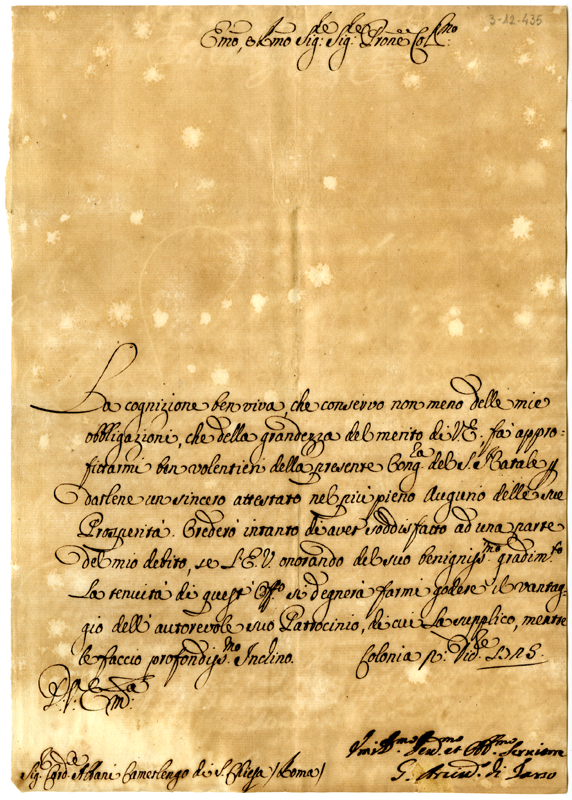 3-12-435
Emo, e Rmo Sig.re Sig.re Prone Col.mo
La cognizione ben viva, che conservo non meno delle mie
obbligazioni, che della grandezza del merito di V.E. fà appro=
fittarmi ben volentieri della presente Cong.ra del S. Natale p
darlene un sincero attestato nel più pieno Augurio delle sue
Prosperità. Crederò intanto di aver soddisfatto ad una parte
del mio debito, se l'E.V. onorando del suo benigniss.mo gradim.to
La tenuità di quest' Off.o si degnerà farmi godere il vantag=
gio dell' autorevole suo Patrocinio, di cui La supplico, mentre
le faccio profondiss.mo Inchino. Colonia p.
Sig. Card.le Albani Camerlengo di S. Chiesa /Roma/
Umil.mo Dev.mo et Obb.mo Servitore
G. di Tarso